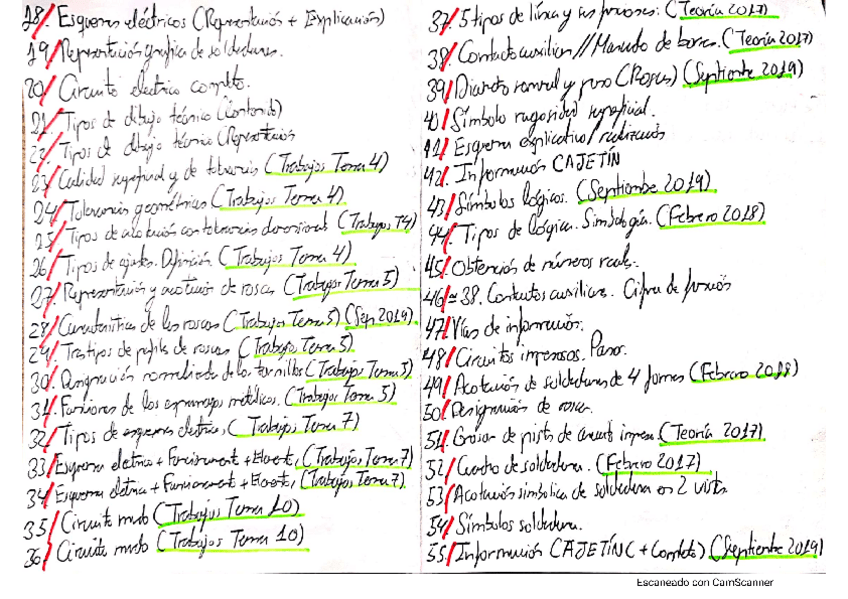 18/. Esquemas eléctricos (Representación + Explicación)
19/ Representación grafica de soldaduras.
20/ Circuito electrico completo.
21/. Tipos de dibujo técnico (Contenido)
22/. Tipos de dibujo técnico (Representación
23/ Calidad superficial y de tolerancia (Trabajos Tema 4)
24/ Tolerancias geométricas (Trabajos Tema 4).
25/ Tipos de acotación con tolerancias dimensionales (Trabajos T4)
26/ Tipos de ajustes. Definición. (Trabajos Tema 4)
27/ Representación y acotación de roscas (Trabajos Tema 5)
28/ Características de las roscas (Trabajos Tema 5) (Sep. 2019).
29/ Tres tipos de perfiles de roscas (Trabajo Tema 5).
30/ Designación normalizada de los tornillos (Trabajos Tema 5)
31/ Funciones de los metálicos. (Trabajos Tema 5).
32/ Tipos de esquemas electricos, (Trabajos Tema 7)
33/ Esquema eletrico + Funcionamiento + Element, (Trabajos Tema 7)
34/ Esquema eletrico + Funcionamiento + Element, (Trabajos Tema 7).
35/ Circuito mudo (Trabajos Tema 10)
36/ Circuito mudo (Trabajos Tema 10)
37/. 5 tipos de línea y sus funciones. (Teoría 2017)
38/ Contacto auxiliar // Marcado de bornes. (Teoría 2017)
39/ Diametro nominal y paso (Roscas) (Septiembre 2019)
40/ Símbolo rugosidad superficial.
41/ Esquema explicativo / realización
42/. Información CAJETÍN
43/ Símbolos lógicos. (Septiembre 2019)
44/. Tipos de lógica. Simbología. (Febrero 2018)
45/ Obtención de números reales.
46/ = 38. Contactos auxiliares. Cifra de función
47/ Vías de información.
48/ Circuitos impresos. Pasos.
49/ Acotación de soldaduras de 4 formas (Febrero 2018)
50/ Designación de roscas.
51/. Grosor de pista de circuito impreso (Teoría 2017).
52/ Cuadro de soldadura. (Febrero 2017)
53/ Acotación simbólica de soldadura en 2 vistas.
54/ Símbolos soldadura.
55/ Información CAJETÍN (+ Completo) (Septiembre 2019)
Escaneado con CamScanner